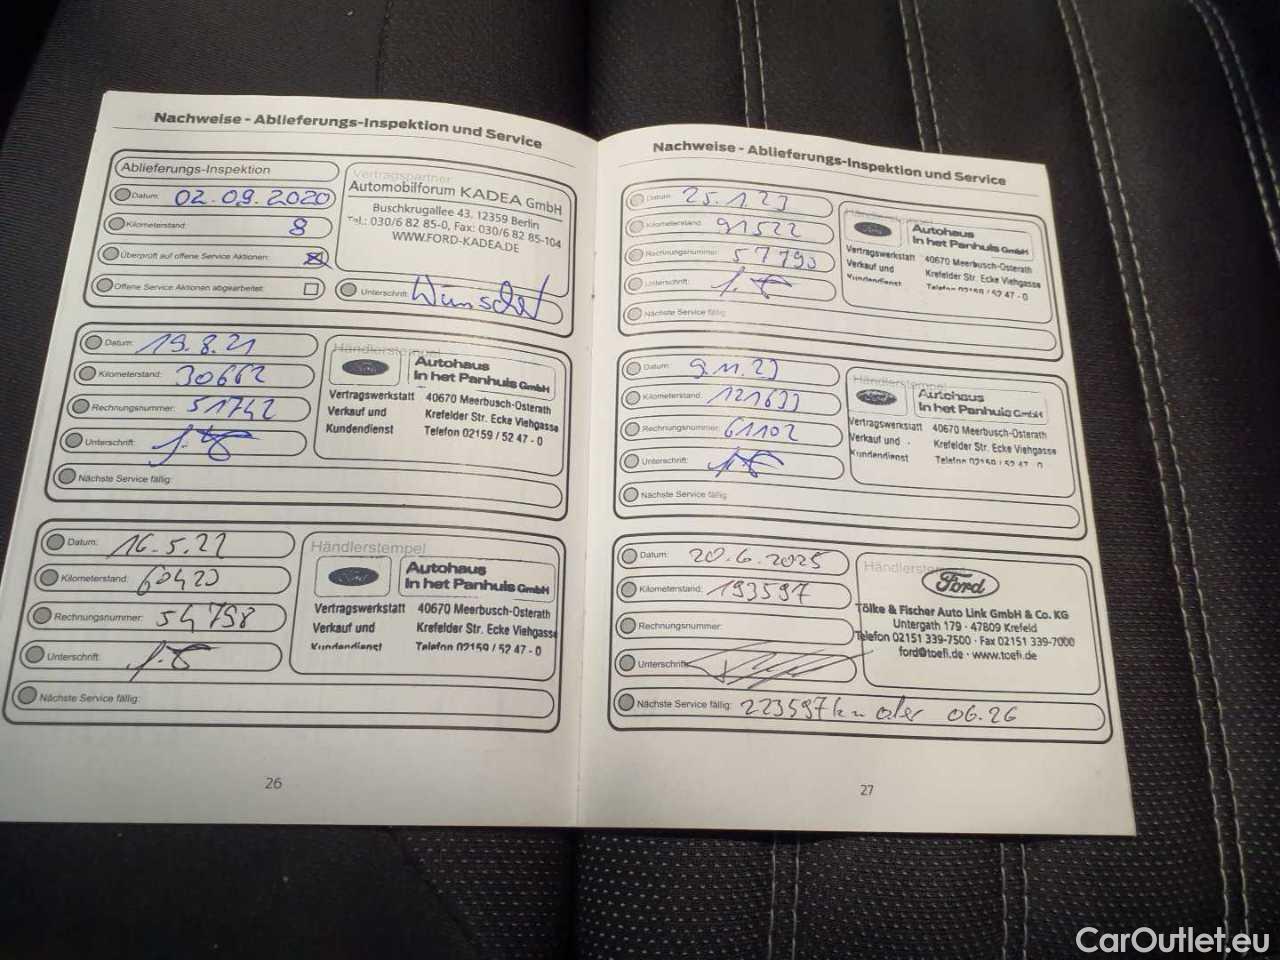 Nachweise - Ablieferungs-Inspektion und Service
Ablieferungs-Inspektion
Datum: 02.09.2020
Kilometerstand: 8
Überprüft auf offene Service Aktionen:
Offene Service Aktionen abgearbeitet:
Vertragspartner
Automobilforum KADEA GmbH
Buschkrugallee 43, 12359 Berlin
Tel.: 030/6 82 85-0, Fax: 030/6 82 85-104
WWW.FORD-KADEA.DE
Unterschrift: Wünschel
Datum: 19.8.21
Kilometerstand: 30662
Rechnungsnummer: 51742
Unterschrift:
Nächste Service fällig:
Händlerstempel
Ford
Autohaus
In het Panhuis GmbH
Vertragswerkstatt 40670 Meerbusch-Osterath
Verkauf und Krefelder Str. Ecke Viehgasse
Kundendienst Telefon 02159 / 52 47 - 0
Datum: 16.5.22
Kilometerstand: 60420
Rechnungsnummer: 54798
Unterschrift:
Nächste Service fällig:
Händlerstempel
Ford
Autohaus
In het Panhuis GmbH
Vertragswerkstatt 40670 Meerbusch-Osterath
Verkauf und Krefelder Str. Ecke Viehgasse
Kundendienst Telefon 02159 / 52 47 - 0
26
Nachweise - Ablieferungs-Inspektion und Service
Datum: 25.1.23
Kilometerstand: 91522
Rechnungsnummer: 57790
Unterschrift:
Nächste Service fällig:
Händlerstempel
Ford
Autohaus
In het Panhuis GmbH
Vertragswerkstatt 40670 Meerbusch-Osterath
Verkauf und Krefelder Str. Ecke Viehgasse
Kundendienst Telefon 02159 / 52 47 - 0
Datum: 9.11.23
Kilometerstand: 121633
Rechnungsnummer: 61102
Unterschrift:
Nächste Service fällig:
Händlerstempel
Ford
Autohaus
In het Panhuis GmbH
Vertragswerkstatt 40670 Meerbusch-Osterath
Verkauf und Krefelder Str. Ecke Viehgasse
Kundendienst Telefon 02159 / 52 47 - 0
Datum: 20.6.2025
Kilometerstand: 193597
Rechnungsnummer:
Unterschrift:
Nächste Service fällig: 223597km oder 06.26
Händlerstempel
Ford
Tölke & Fischer Auto Link GmbH & Co. KG
Untergath 179 · 47809 Krefeld
Telefon 02151 339-7500 · Fax 02151 339-7000
ford@toefi.de · www.toefi.de
27
CarOutlet.eu